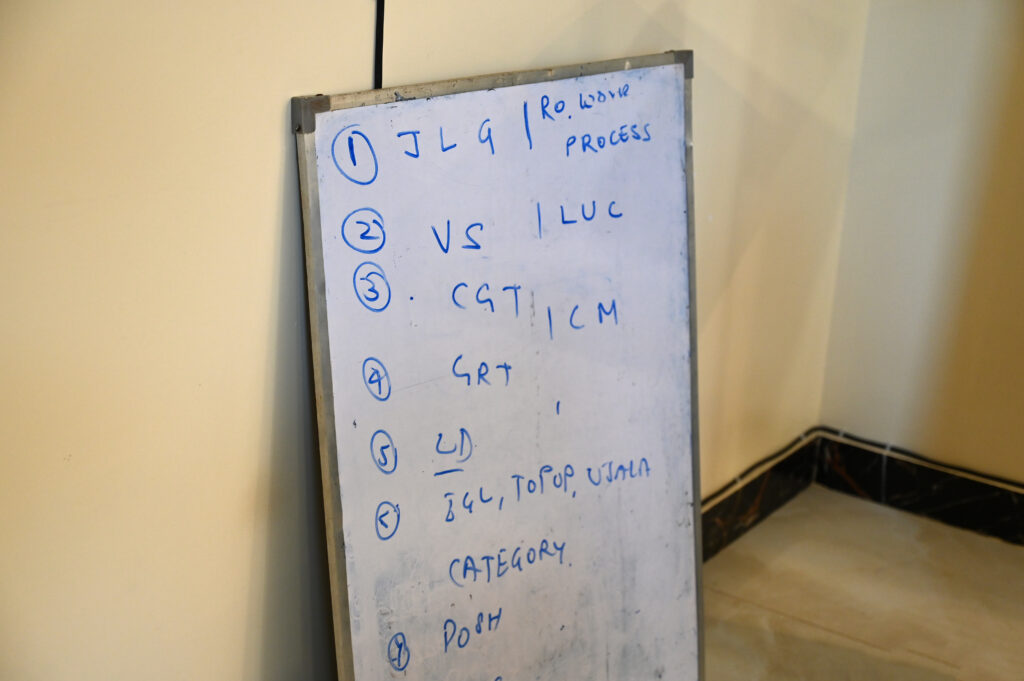 ① JLG | RO. WORK
PROCESS
② VS | LUC
③ . CGT | CM
④ GRT
⑤ LD
⑥ IGL, TOPUP, UJALA
CATEGORY.
⑦ POSH